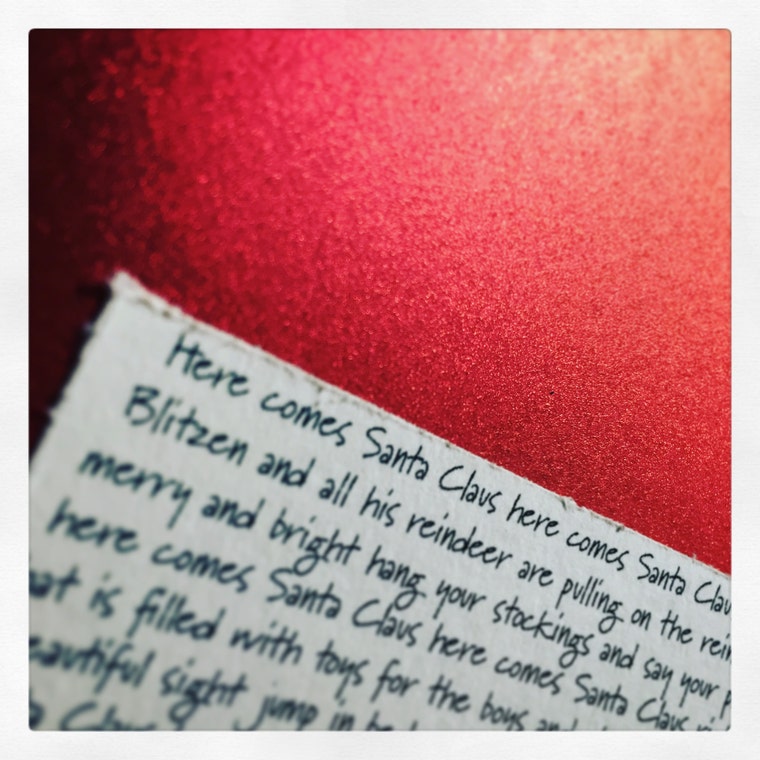 Here comes Santa Claus here comes Santa Clau
Blitzen and all his reindeer are pulling on the rein
merry and bright hang your stockings and say your p
here comes Santa Claus here comes Santa Claus
at is filled with toys for the boys and
eautiful sight jump in